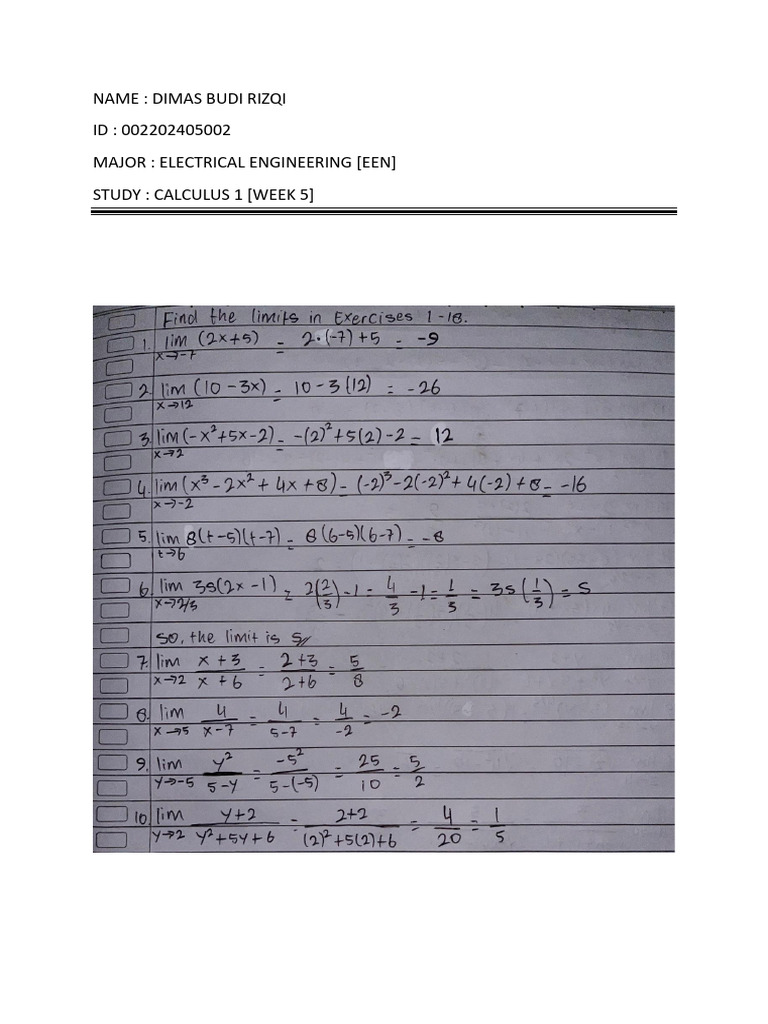 NAME : DIMAS BUDI RIZQI
ID : 002202405002
MAJOR : ELECTRICAL ENGINEERING [EEN]
STUDY : CALCULUS 1 [WEEK 5]
Find the limits in Exercises 1-18.
1. lim x→-7 (2x+5) = 2·(-7)+5 = -9
2. lim x→12 (10-3x) = 10-3(12) = -26
3. lim x→2 (-x²+5x-2) = -(2)²+5(2)-2 = 12
4. lim x→-2 (x³-2x²+4x+8) = (-2)³-2(-2)²+4(-2)+8 = -16
5. lim t→6 8(t-5)(t-7) = 8(6-5)(6-7) = -8
6. lim x→2/3 3s(2x-1) = 2(2/3)-1 = 4/3 -1 = 1/3 = 3s(1/3) = s
so, the limit is s//
7. lim x→2 x+3/x+6 = 2+3/2+6 = 5/8
8. lim x→5 4/x-7 = 4/5-7 = 4/-2 = -2
9. lim y→-5 y²/5-y = -5²/5-(-5) = 25/10 = 5/2
10. lim y→2 y+2/y²+5y+6 = 2+2/(2)²+5(2)+6 = 4/20 = 1/5